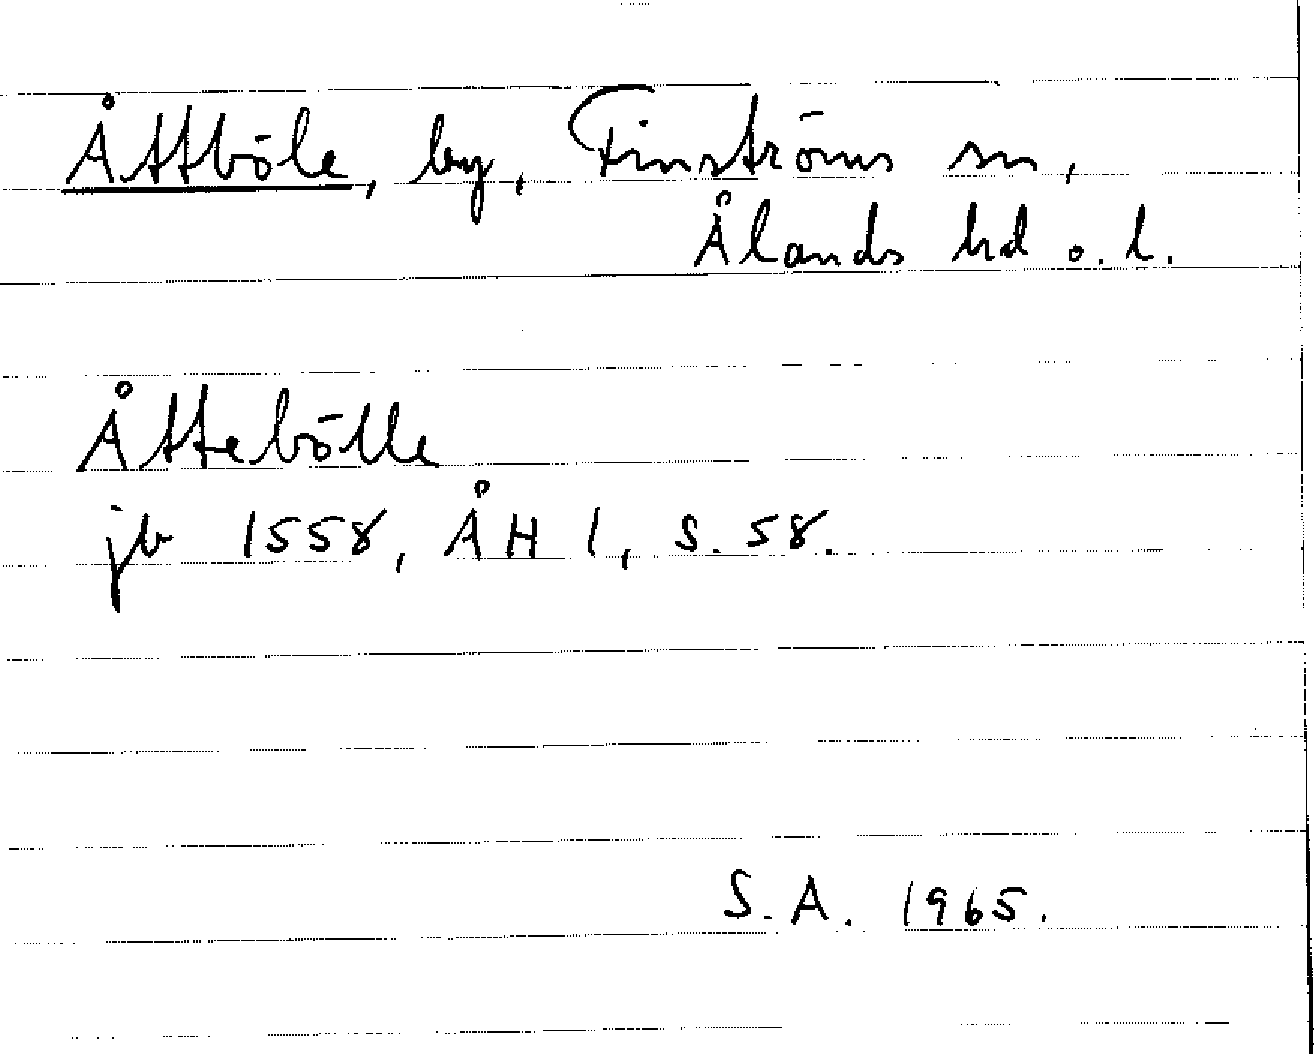 Åttböle, by, Finströms sn,
Ålands hd o. l.
Åttebölle
jb 1558, ÅH 1, s. 58.
S. A. 1965.